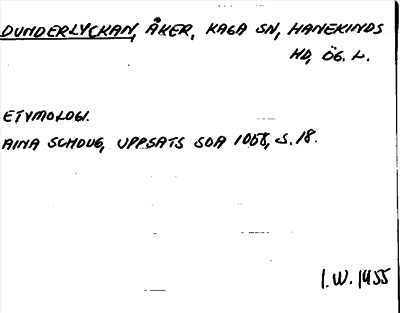 DUNDERLYCKAN, ÅKER, KAGA SN, HANEKINDS
HD, ÖG. L.
ETYMOLOGI.
AINA SCHOUG, UPPSATS SOA 1058, S. 18.
I.W. 1955